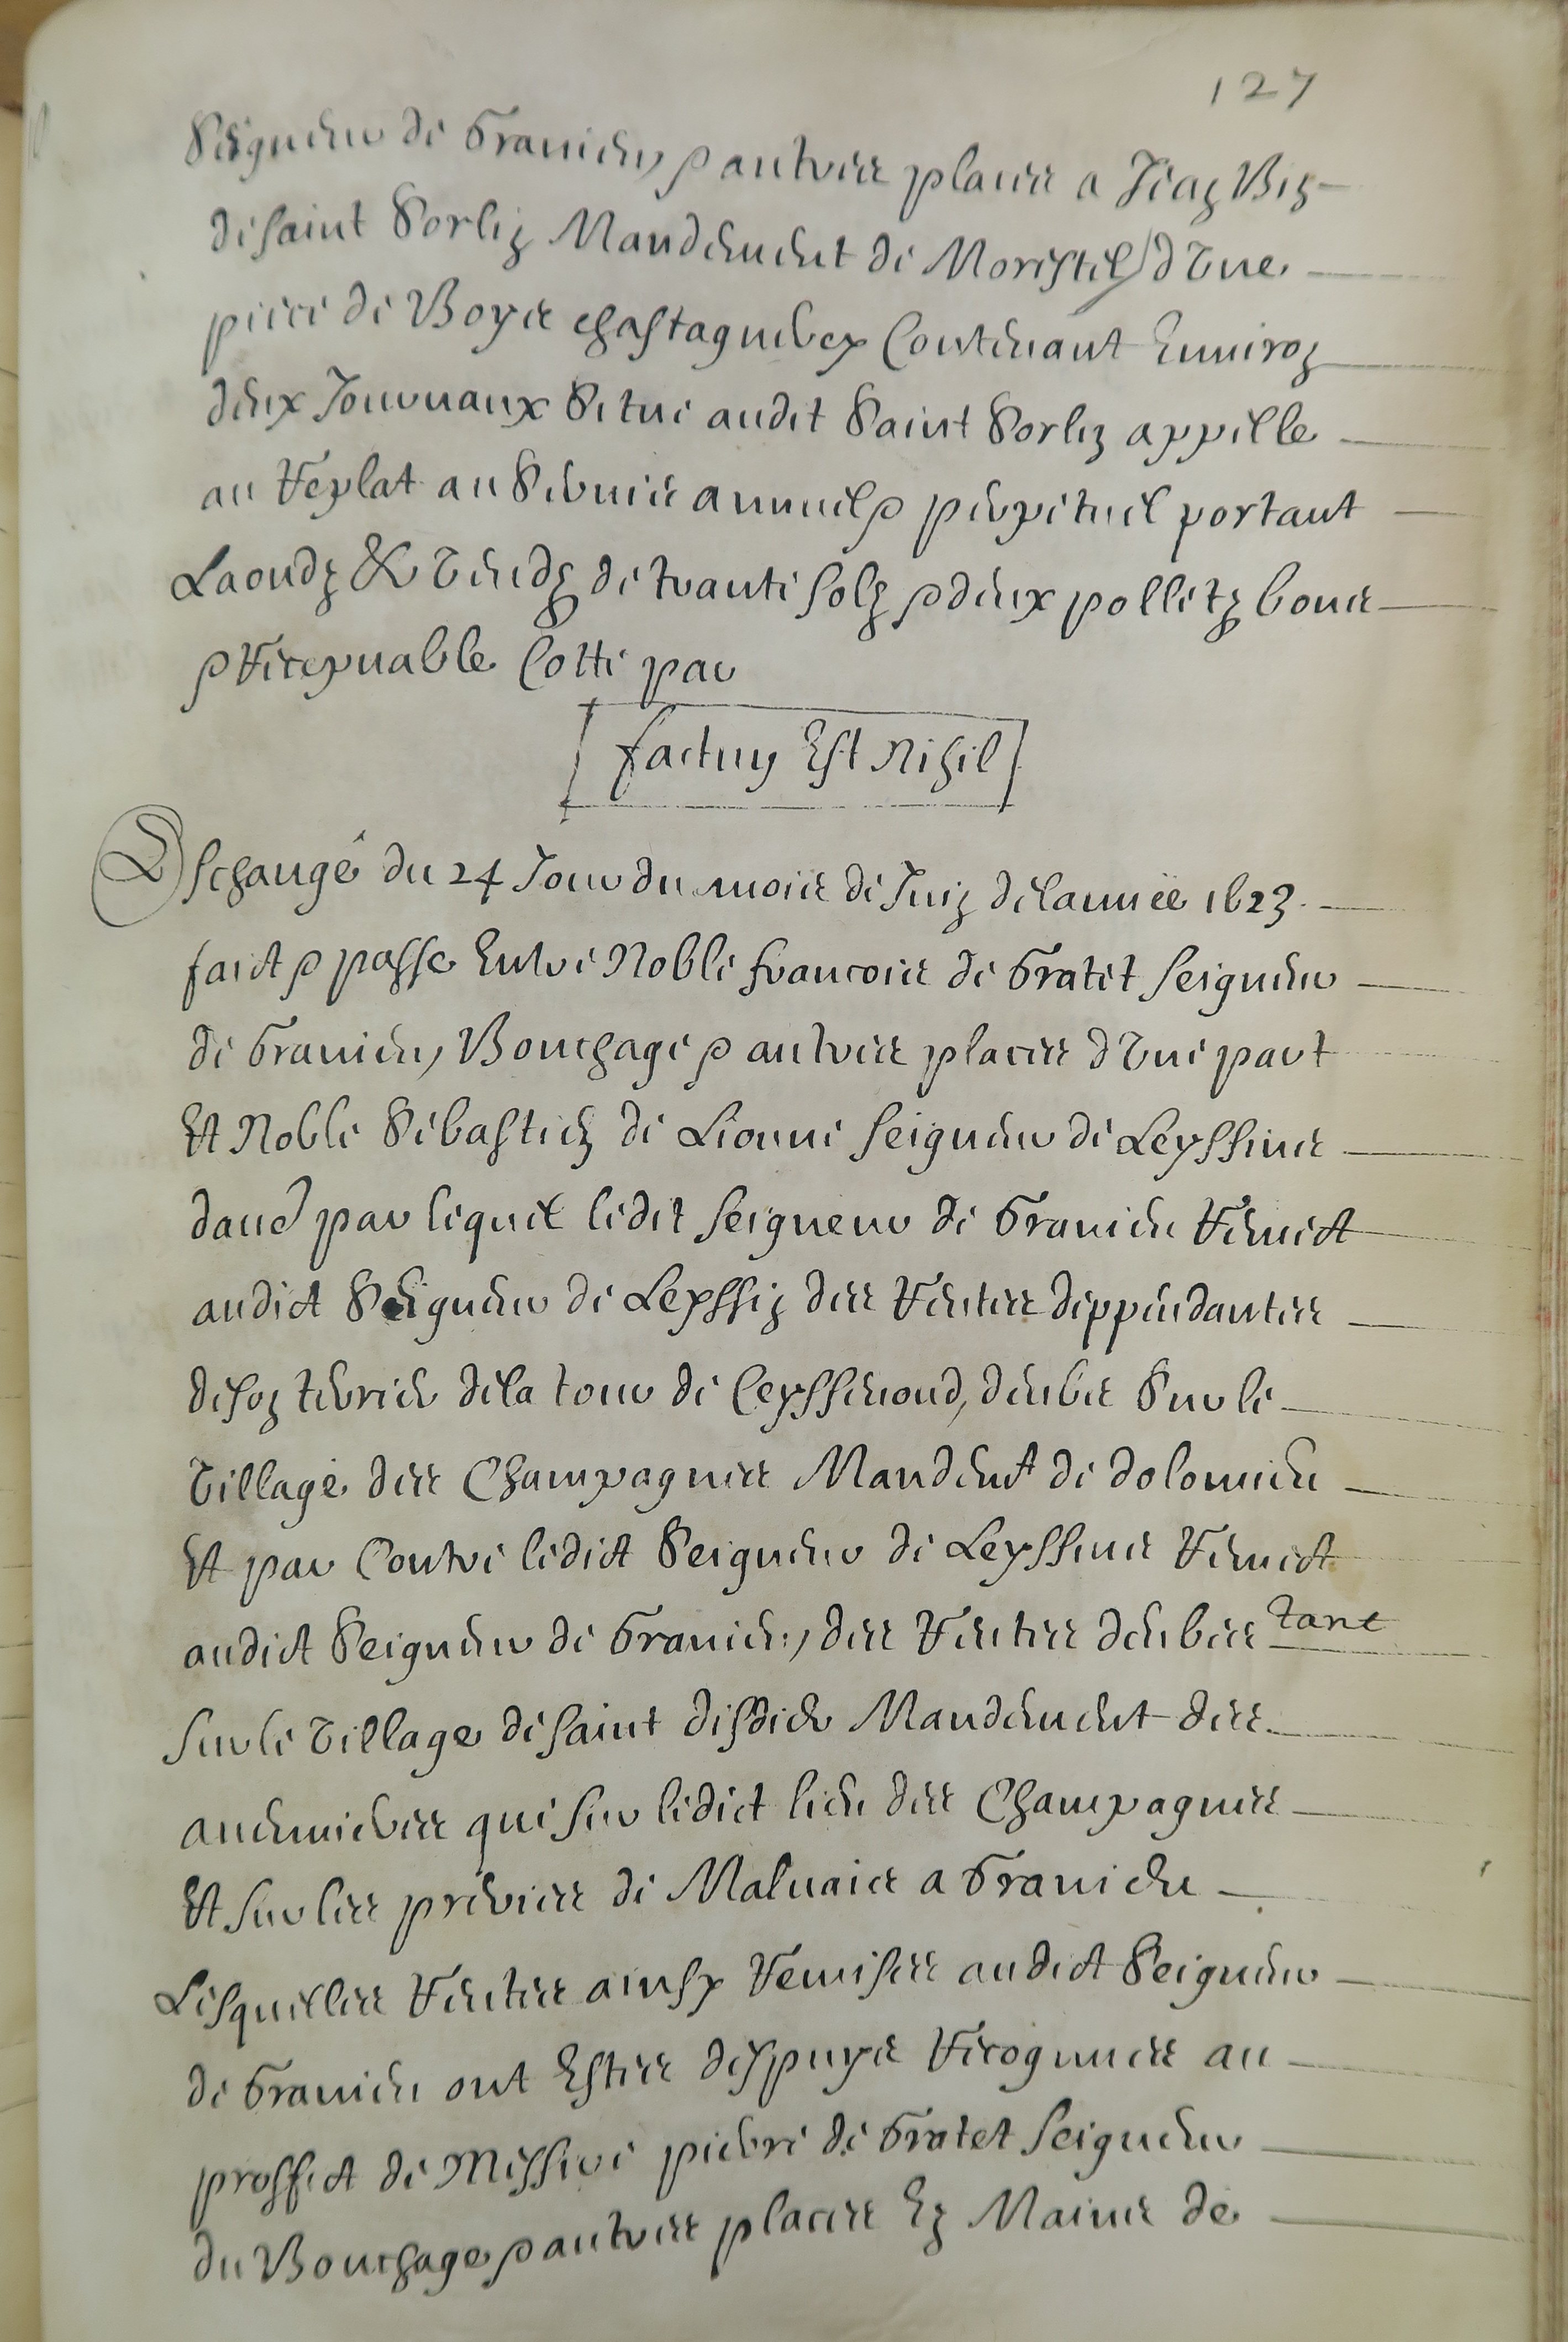 127
Seigneur de Granieu, et autres places a Jean Bin
de saint Sorlin Mandement de Morestel, d'vne
piece de Boys chastagnerey Contenant Enuiron
deux Journaux Situé audit Saint Sorlin appelle
au Replat au Seruice annuel et perpetuel portant
Laoudz & vendz de trante solz et deux polletz bons
et Receptuable Cotté par
factum Est Nihil
Eschange du 24 Jour du mois de Juin de lannée 1623
faict et passe Entre Noble francois de Gratet seigneur
de Granieu, Bouchage et autres places d'vne part
Et Noble Sebastien de Lionne seigneur de Leyssins
daud par lequel ledit seigneur de Granieu Remect
audict Seigneur de Leyssin des Rentes deppendantes
de son terrier de la tour de Ceyssenoud, deubs Sur le
village des Champagnes Mandemt de dolomieu
Et par Contre ledict Seigneur de Leyssins Remect
audict Seigneur de Granieu, des Rentes deubes tant
sur le village de saint disdier Mandement des
auenieres que sur ledict lieu des Champagnes
Et sur les preries de Maluais a Granieu
Lesquelles Rentes ainsy Remises audict Seigneur
de Granieu ont Estes despuys Recogneues au
proffict de Messire pierre de Gratet seigneur
du Bouchage et autres places Ez Mains de